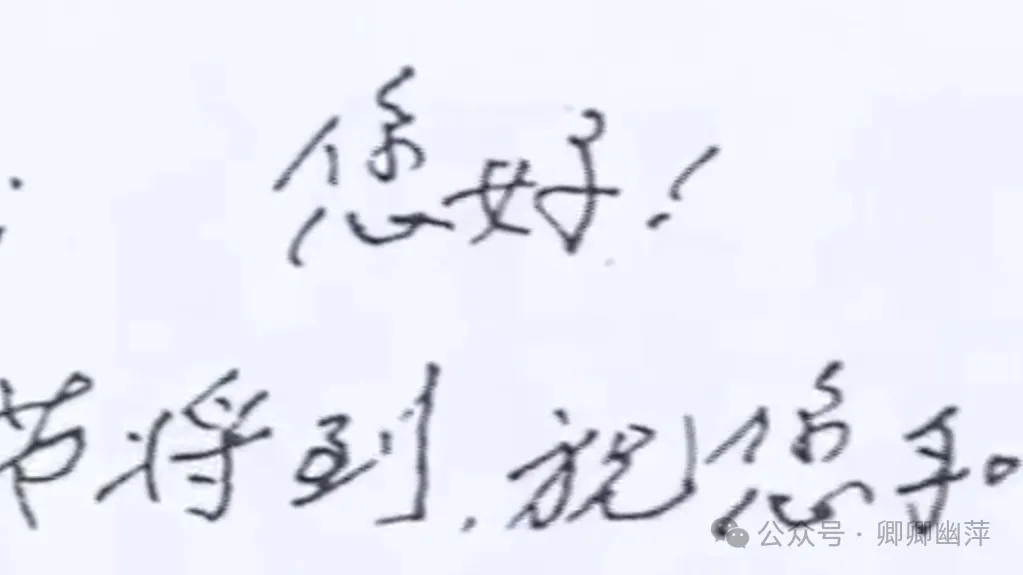 ： 您好！
节将到，祝您和
公众号 · 卿卿幽萍